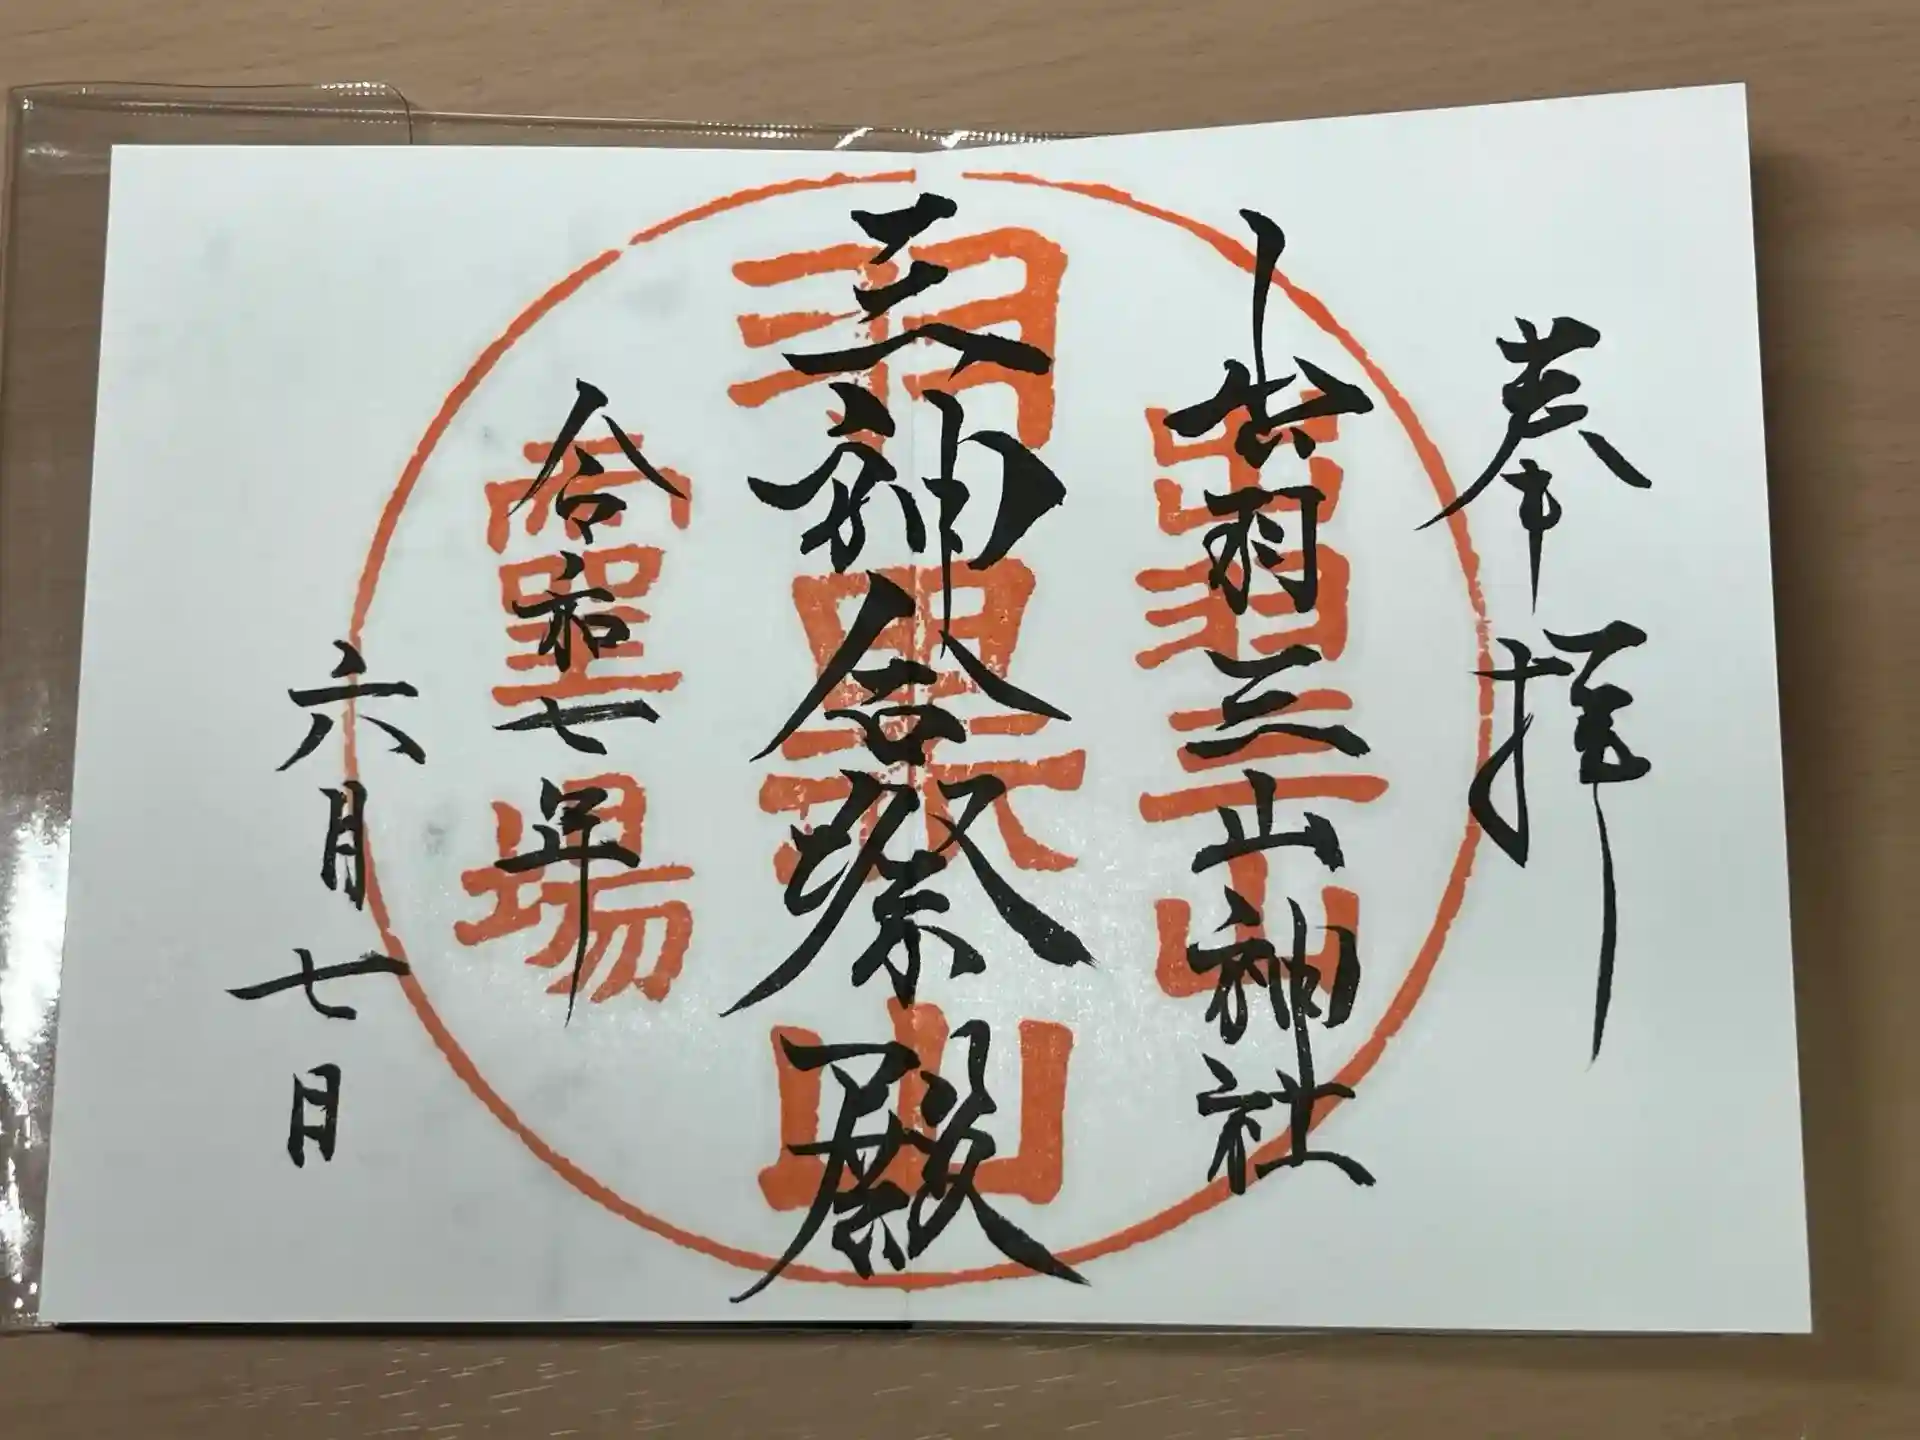 奉拝
出羽三山神社
三神合祭殿
令和七年
六月七日
出羽三山
羽黒山
霊場